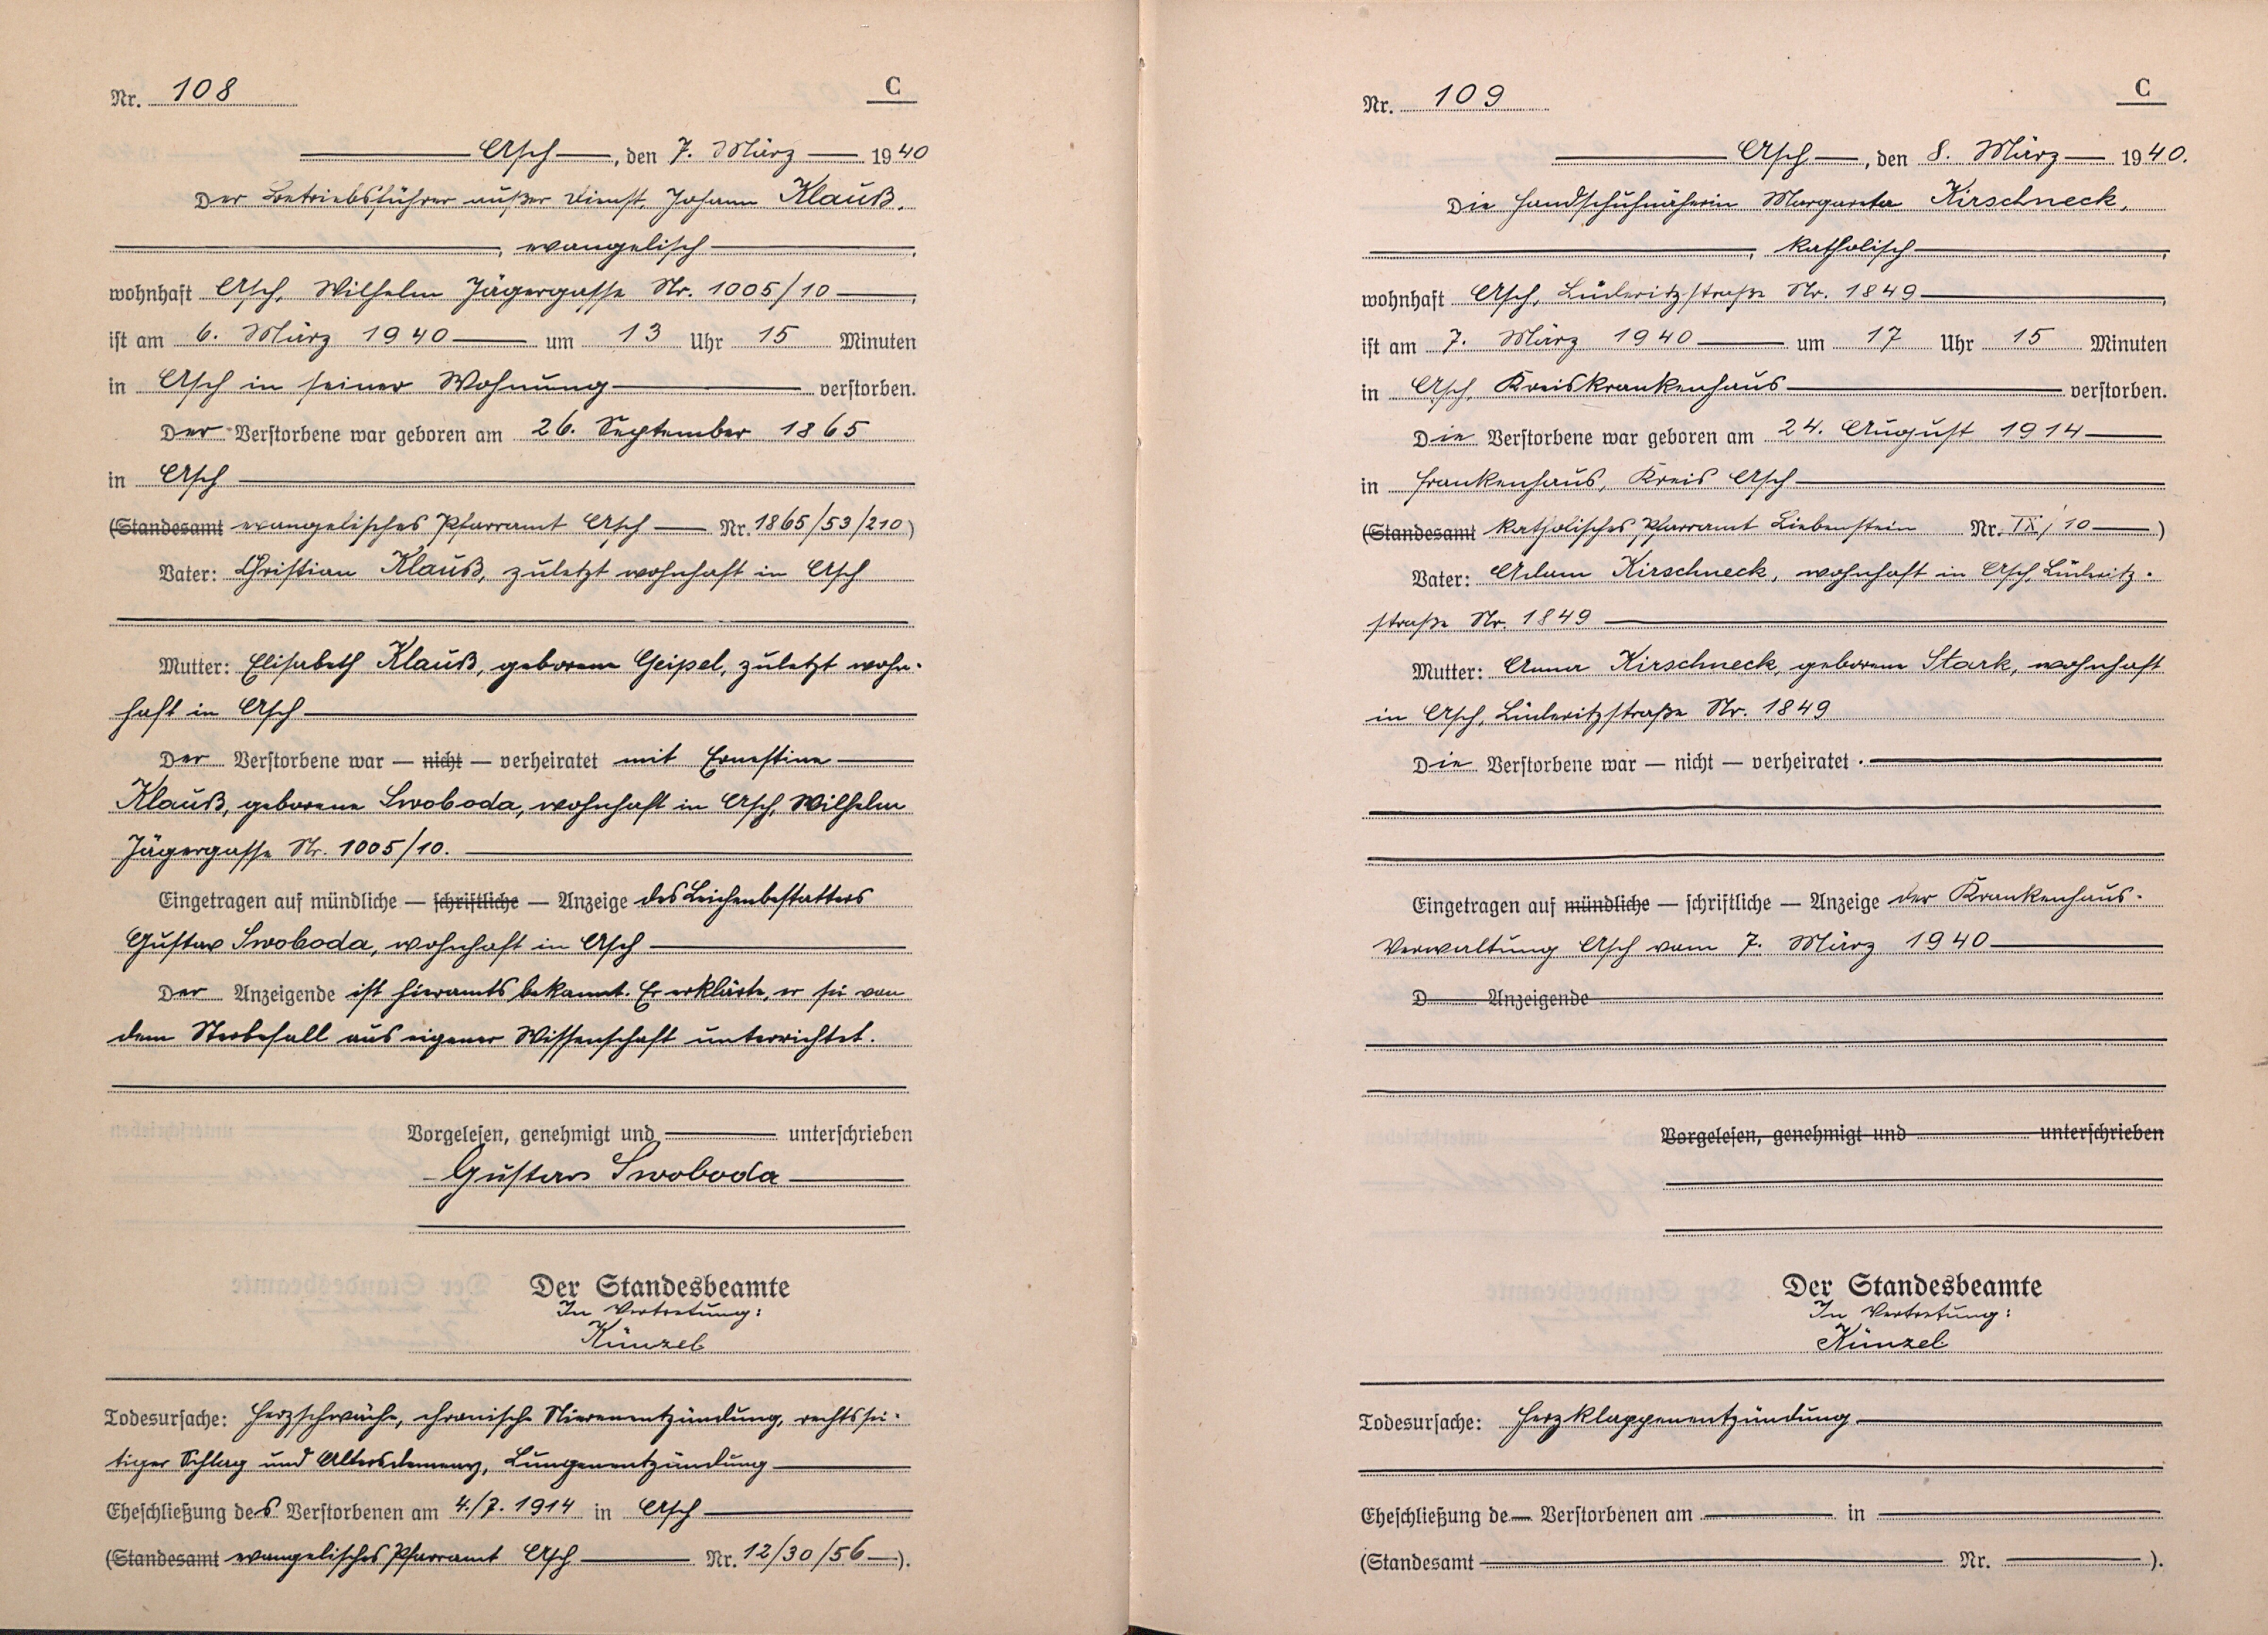 Nr. 108
C
Asch, den 7. März 1940
Der Betriebsführer außer Dienst Johann Klauß,
, evangelisch,
wohnhaft Asch, Wilhelm Jägergasse Nr. 1005/10,
ist am 6. März 1940 um 13 Uhr 15 Minuten
in Asch in seiner Wohnung verstorben.
Der Verstorbene war geboren am 26. September 1865
in Asch
(Standesamt evangelisches Pfarramt Asch Nr. 1865/53/210)
Vater: Christian Klauß, zuletzt wohnhaft in Asch
Mutter: Elisabeth Klauß, geborene Geipel, zuletzt wohn-
haft in Asch
Der Verstorbene war — nicht — verheiratet mit Ernestine
Klauß, geborene Swoboda, wohnhaft in Asch, Wilhelm
Jägergasse Nr. 1005/10.
Eingetragen auf mündliche — schriftliche — Anzeige des Leichenbestatters
Gustav Swoboda, wohnhaft in Asch
Der Anzeigende ist hieramts bekannt. Er erklärte, er sei von
dem Sterbefall aus eigener Wissenschaft unterrichtet.
Vorgelesen, genehmigt und unterschrieben
Gustav Swoboda
Der Standesbeamte
In Vertretung:
Künzel
Todesursache: Herzschwäche, chronische Nierenentzündung, rechtssei-
tiger Schlag und Altersdemenz, Lungenentzündung
Eheschließung des Verstorbenen am 4./7. 1914 in Asch
(Standesamt evangelisches Pfarramt Asch Nr. 12/30/56).
Nr. 109
C
Asch, den 8. März 1940.
Die Handschuhnäherin Margareta Kirschneck,
, katholisch,
wohnhaft Asch, Lüderitzstraße Nr. 1849,
ist am 7. März 1940 um 17 Uhr 15 Minuten
in Asch, Kreiskrankenhaus verstorben.
Die Verstorbene war geboren am 24. August 1914
in Frankenhaus, Kreis Asch
(Standesamt katholisches Pfarramt Liebenstein Nr. IX/10)
Vater: Adam Kirschneck, wohnhaft in Asch, Lüderitz-
straße Nr. 1849
Mutter: Anna Kirschneck, geborene Stark, wohnhaft
in Asch, Lüderitzstraße Nr. 1849
Die Verstorbene war — nicht — verheiratet.
Eingetragen auf mündliche — schriftliche — Anzeige der Krankenhaus-
Verwaltung Asch vom 7. März 1940
D Anzeigende
Vorgelesen, genehmigt und unterschrieben
Der Standesbeamte
In Vertretung:
Künzel
Todesursache: Herzklappenentzündung
Eheschließung de Verstorbenen am in
(Standesamt Nr. ).